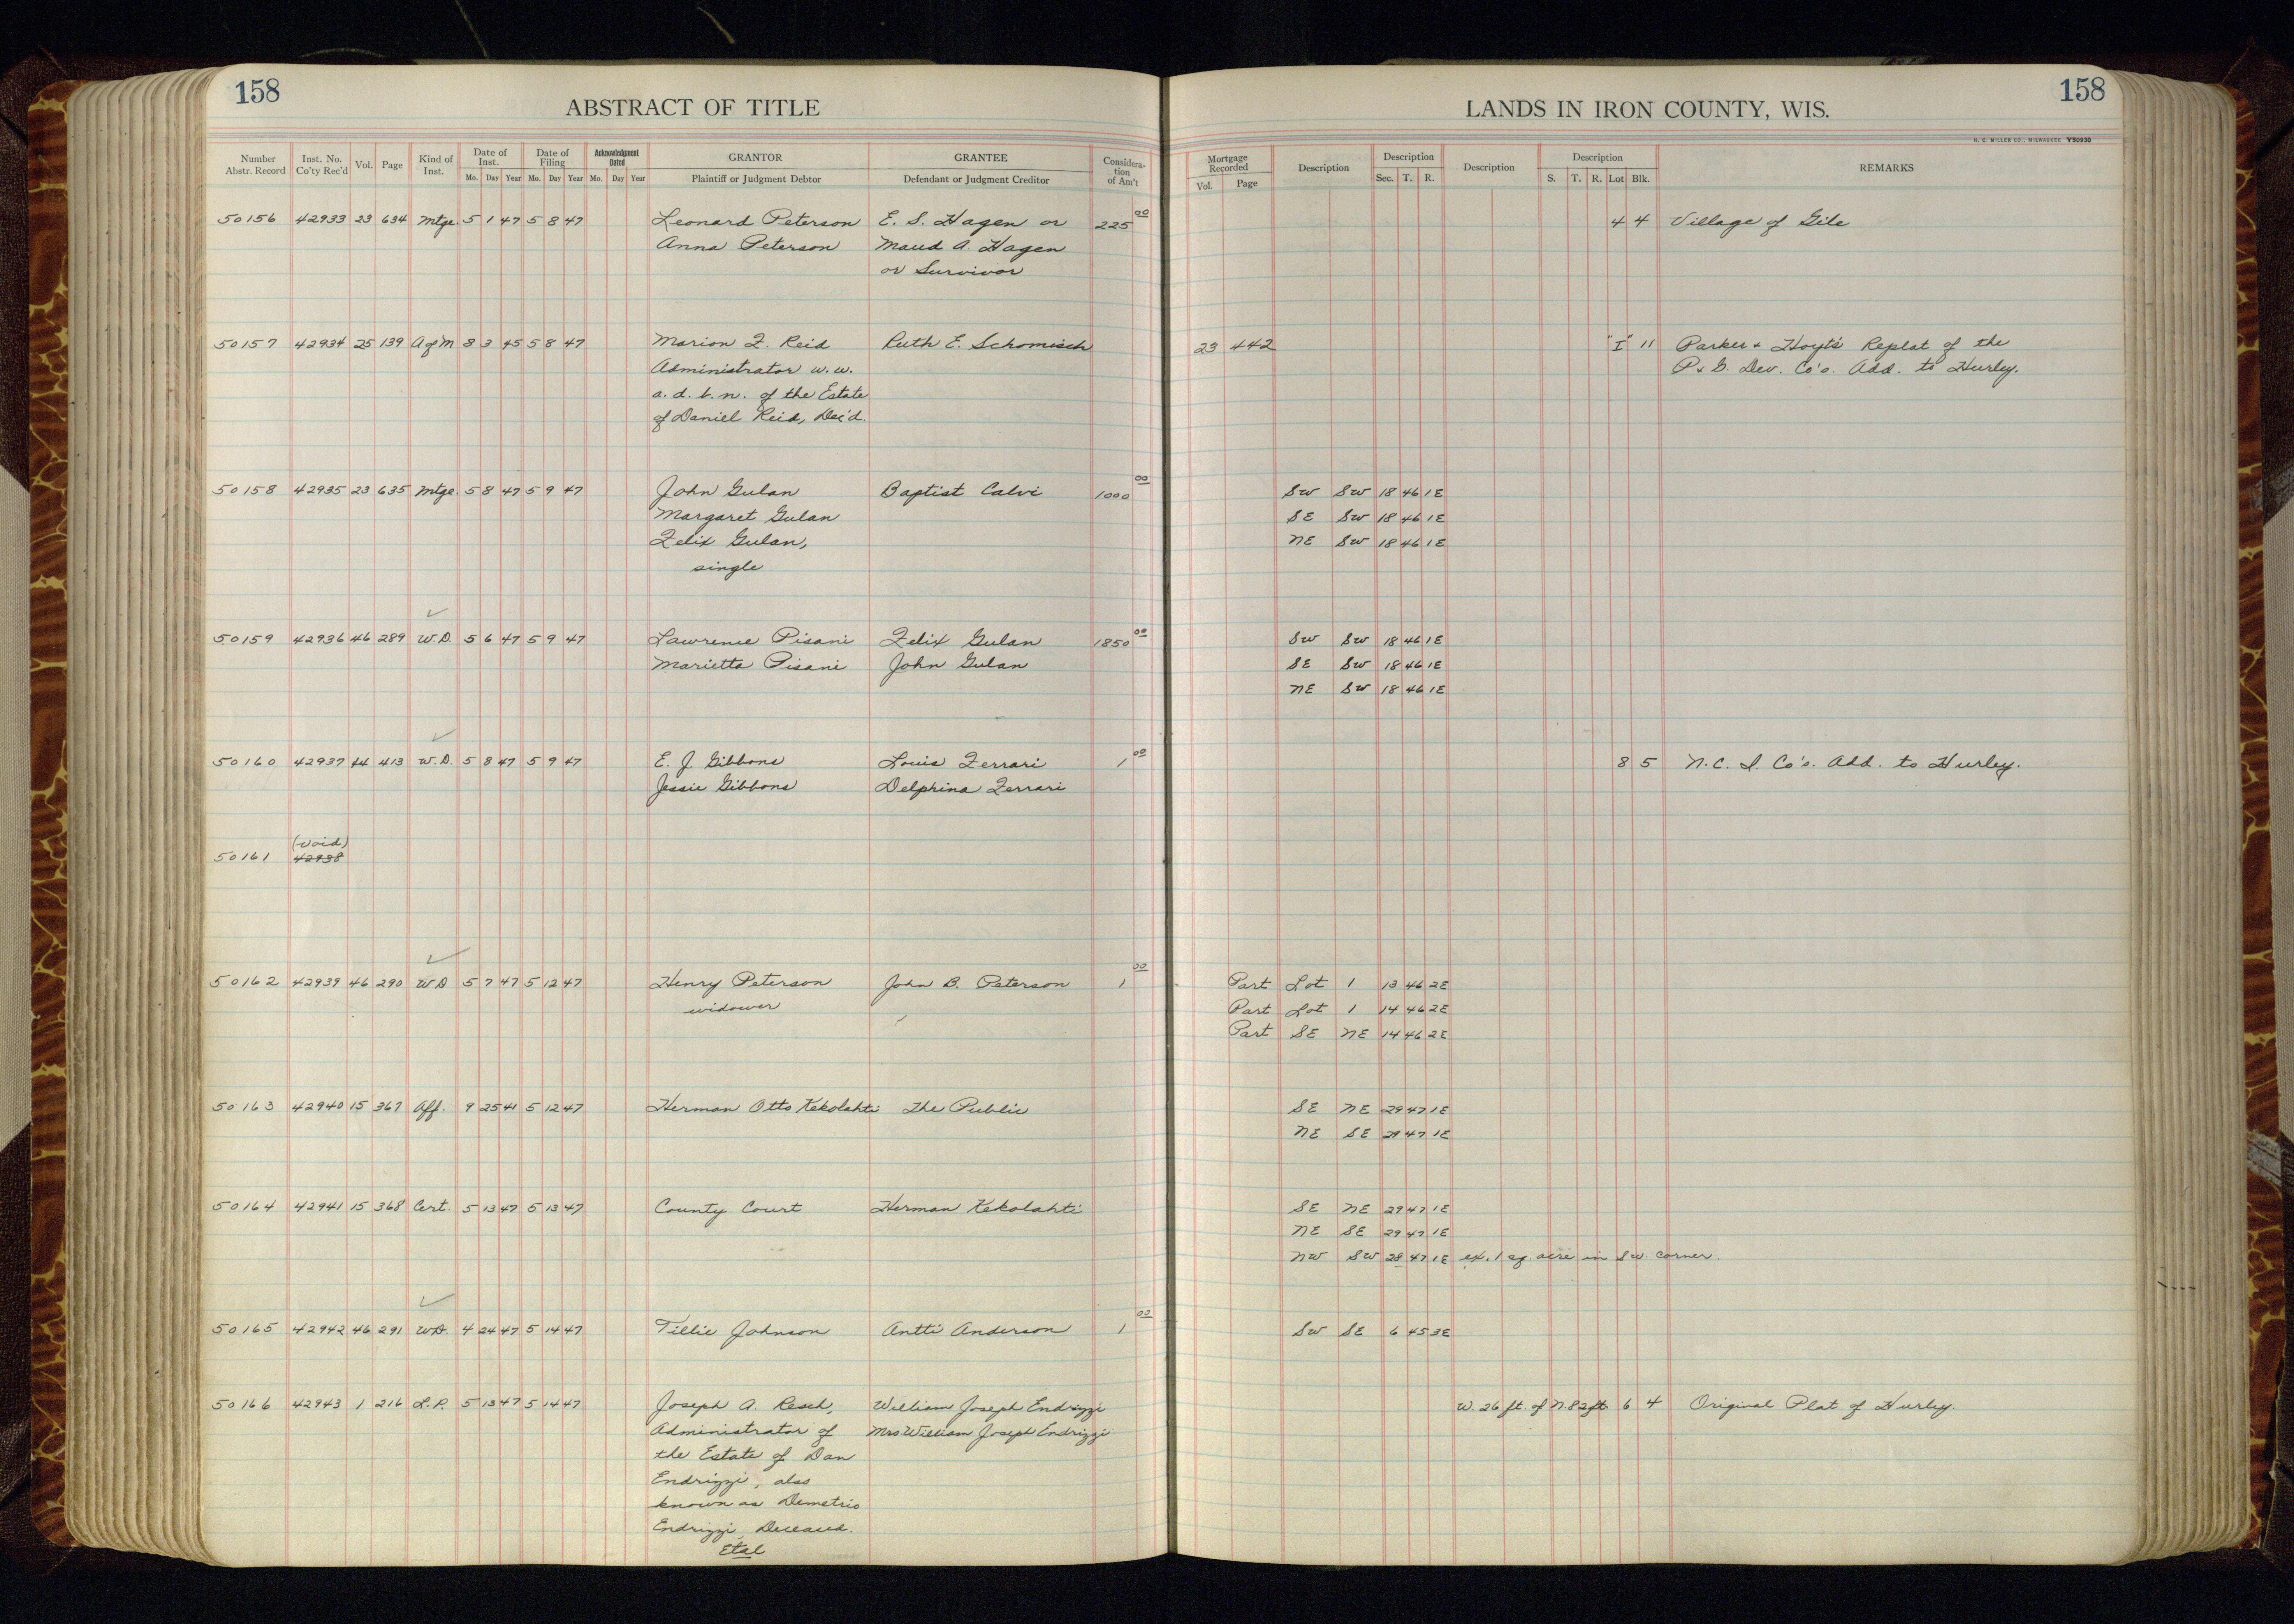 158
ABSTRACT OF TITLE
LANDS IN IRON COUNTY, WIS.
158
H. C. MILLER CO., MILWAUKEE Y50930
Number Abstr. Record | Inst. No. Co'ty Rec'd | Vol. | Page | Kind of Inst. | Date of Inst. Mo. Day Year | Date of Filing Mo. Day Year | Acknowledgment Dated Mo. Day Year | GRANTOR Plaintiff or Judgment Debtor | GRANTEE Defendant or Judgment Creditor | Considera-tion of Am't | Mortgage Recorded Vol. Page | Description | Description Sec. T. R. | Description | Description S. T. R. Lot Blk. | REMARKS
50156 42933 23 634 Mtge. 5 1 47 5 8 47 Leonard Peterson E. S. Hagen or 225 00 4 4 Village of Gile
Anna Peterson Maud A. Hagen
or Survivor
50157 42934 25 139 A of M 8 3 45 5 8 47 Marion F. Reid Ruth E. Schomisch 23 442 "I" 11 Parker & Hoyt's Replat of the
Administrator w.w. P & G. Dev. Co's. Add. to Hurley.
a. d. b. n. of the Estate
of Daniel Reid, Dec'd.
50158 42935 23 635 Mtge. 5 8 47 5 9 47 John Gulan Baptist Calvi 1000 00 SW SW 18 46 1E
Margaret Gulan SE SW 18 46 1E
Felix Gulan, NE SW 18 46 1E
single
50159 42936 46 289 W.D. 5 6 47 5 9 47 Lawrence Pisani Felix Gulan 1850 00 SW SW 18 46 1E
Marietta Pisani John Gulan SE SW 18 46 1E
NE SW 18 46 1E
50160 42937 44 413 W.D. 5 8 47 5 9 47 E. J. Gibbons Louis Ferrari 1 00 8 5 N. C. I. Co's. Add. to Hurley.
Jessie Gibbons Delphina Ferrari
(void)
50161 42938
50162 42939 46 290 WD 5 7 47 5 12 47 Henry Peterson John B. Peterson 1 00 Part Lot 1 13 46 2E
widower Part Lot 1 14 46 2E
Part SE NE 14 46 2E
50163 42940 15 367 Aff. 9 25 41 5 12 47 Herman Otto Kekolahti The Public SE NE 29 47 1E
NE SE 29 47 1E
50164 42941 15 368 Cert. 5 13 47 5 13 47 County Court Herman Kekolahti SE NE 29 47 1E
NE SE 29 47 1E
NW SW 28 47 1E ex. 1 sq. acre in SW. corner.
50165 42942 46 291 WD. 4 24 47 5 14 47 Tillie Johnson Antti Anderson 1 00 SW SE 6 45 3E
50166 42943 1 216 L.P. 5 13 47 5 14 47 Joseph A. Resch, William Joseph Endrizzi W. 26 ft. of N. 82 ft. 6 4 Original Plat of Hurley.
Administrator of Mrs William Joseph Endrizzi
the Estate of Dan
Endrizzi, also
known as Demetrio
Endrizzi, Deceased.
Etal